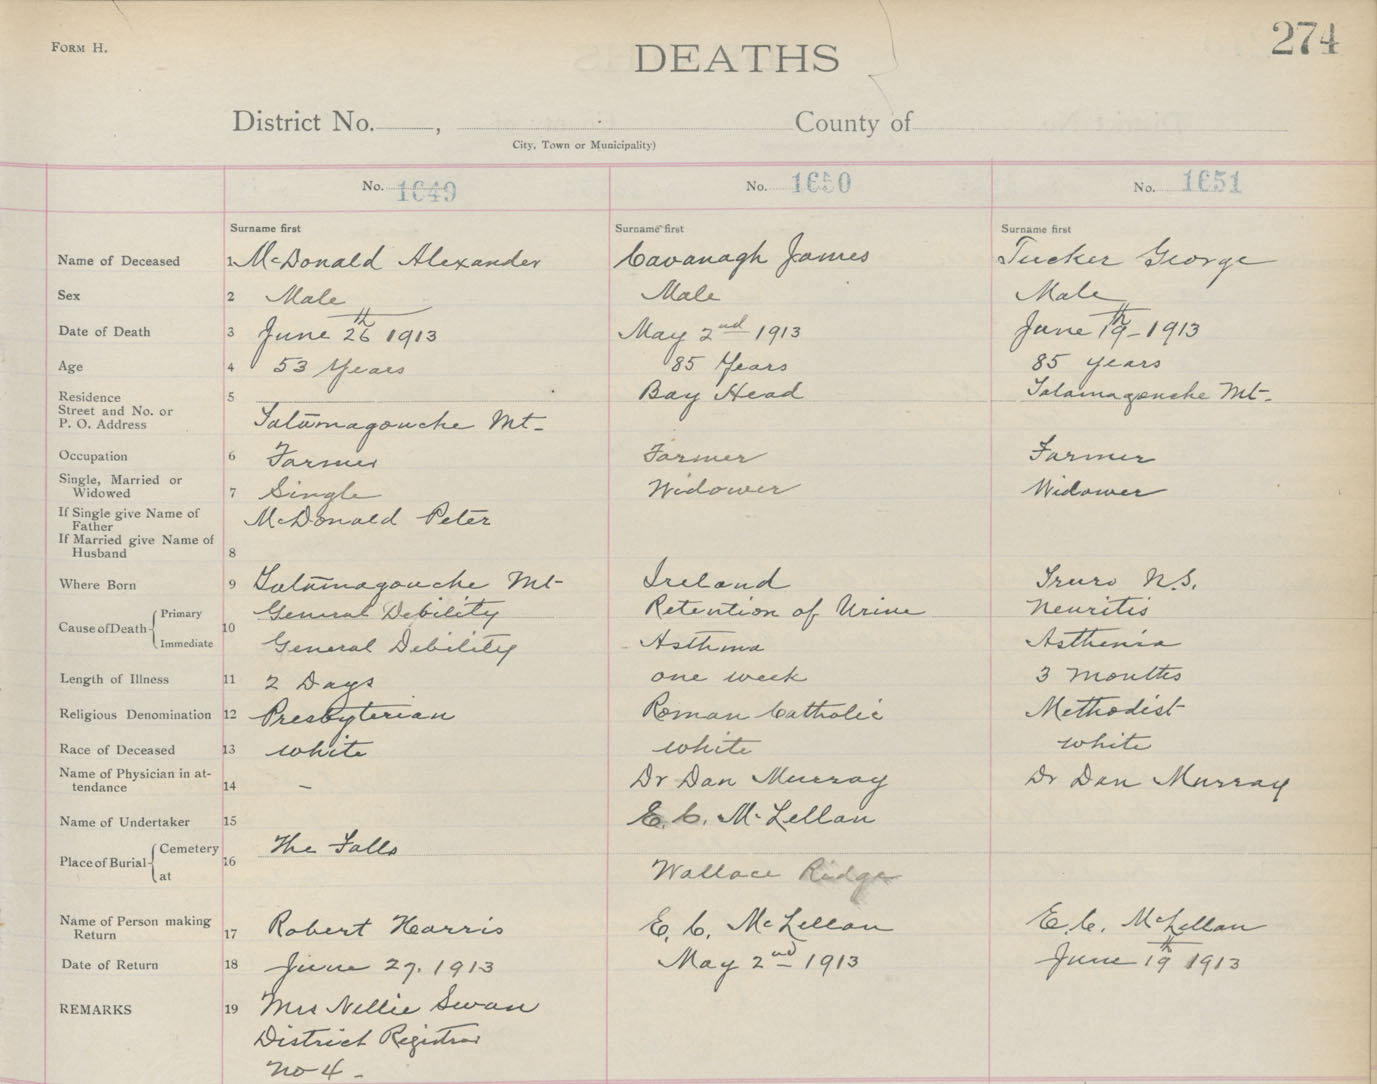 FORM H.
274
DEATHS
District No. , County of
City, Town or Municipality)
No. 1649 No. 1650 No. 1651
Surname first Surname first Surname first
Name of Deceased 1 McDonald Alexander Cavanagh James Tucker George
Sex 2 Male Male Male
Date of Death 3 June 26th 1913 May 2nd 1913 June 19th - 1913
Age 4 53 Years 85 Years 85 years
Residence 5 Bay Head Tatamagouche Mt-
Street and No. or
P. O. Address Tatamagouche Mt-
Occupation 6 Farmer Farmer Farmer
Single, Married or
Widowed 7 Single Widower Widower
If Single give Name of McDonald Peter
Father
If Married give Name of
Husband 8
Where Born 9 Tatamagouche Mt- Ireland Truro N.S.
Cause of Death Primary General Debility Retention of Urine Neuritis
10
Immediate General Debility Asthma Asthenia
Length of Illness 11 2 Days one week 3 months
Religious Denomination 12 Presbyterian Roman Catholic Methodist
Race of Deceased 13 white white white
Name of Physician in at-
tendance 14 - Dr Dan Murray Dr Dan Murray
Name of Undertaker 15 E. C. McLellan
Place of Burial Cemetery The Falls
16
at Wallace Ridge
Name of Person making
Return 17 Robert Harris E. C. McLellan E. C. McLellan
Date of Return 18 June 27. 1913 May 2nd 1913 June 19th 1913
REMARKS 19 Mrs Nellie Swan
District Registrar
No 4 -